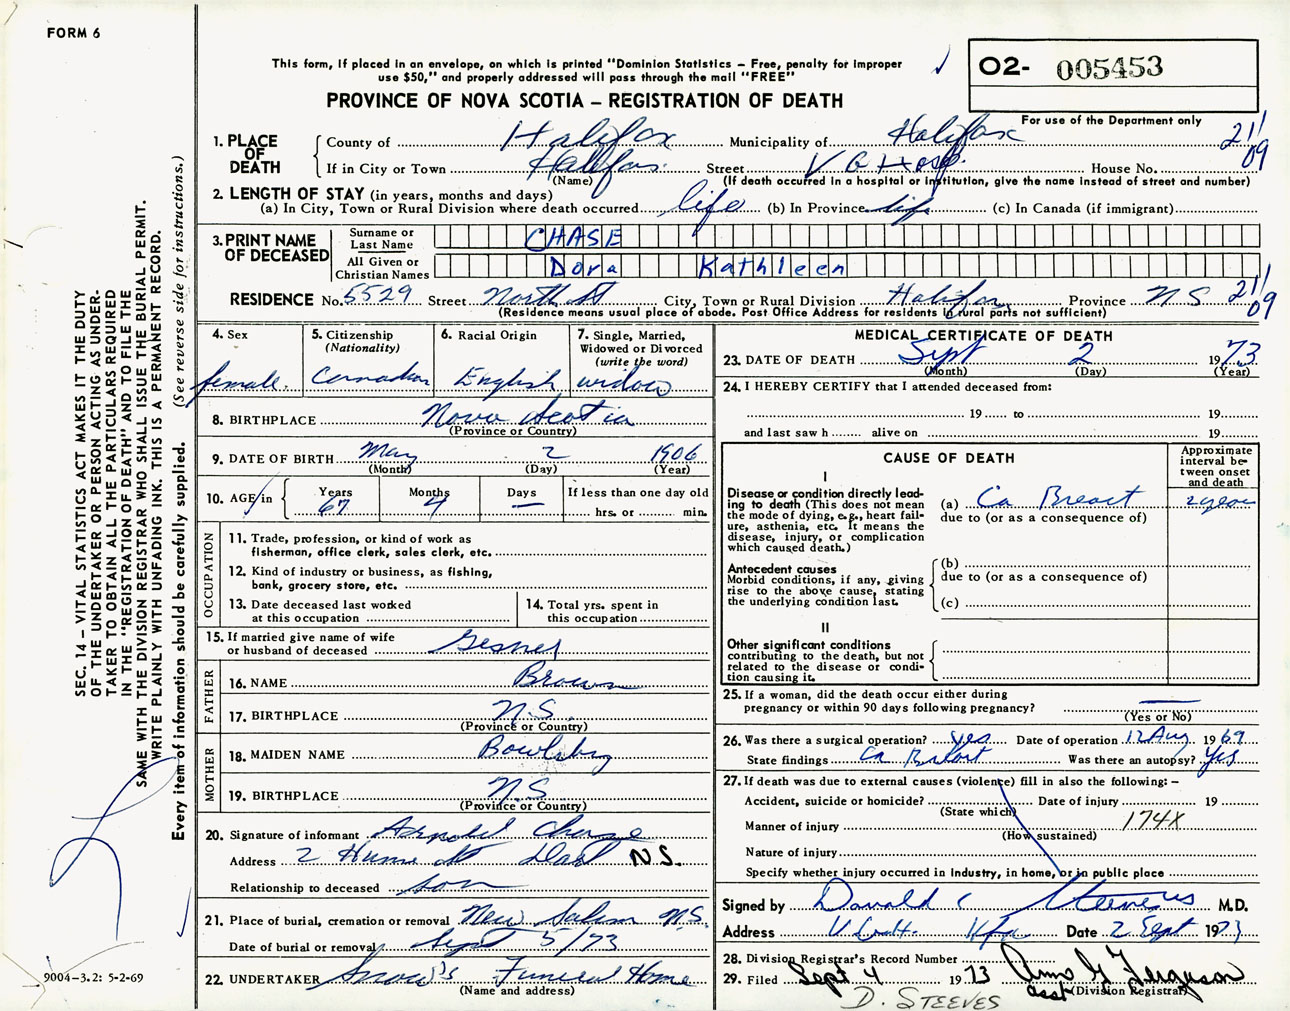 FORM 6
This form, if placed in an envelope, on which is printed "Dominion Statistics – Free, penalty for improper
use $50," and properly addressed will pass through the mail "FREE"
PROVINCE OF NOVA SCOTIA – REGISTRATION OF DEATH
O2- 005453
For use of the Department only
1. PLACE OF DEATH
County of Halifax Municipality of Halifax 21/09
If in City or Town Halifax Street V G Hosp. House No.
(Name) (If death occurred in a hospital or institution, give the name instead of street and number)
2. LENGTH OF STAY (in years, months and days)
(a) In City, Town or Rural Division where death occurred life (b) In Province life (c) In Canada (if immigrant)
3. PRINT NAME OF DECEASED
Surname or Last Name CHASE
All Given or Christian Names Dora Kathleen
RESIDENCE No. 5529 Street North St City, Town or Rural Division Halifax Province N S 21/09
(Residence means usual place of abode. Post Office Address for residents in rural parts not sufficient)
4. Sex
female.
5. Citizenship
(Nationality)
Canadian
6. Racial Origin
English
7. Single, Married,
Widowed or Divorced
(write the word)
widow
8. BIRTHPLACE Nova Scotia
(Province or Country)
9. DATE OF BIRTH May 2 1906
(Month) (Day) (Year)
10. AGE in Years 67 Months 4 Days — If less than one day old
hrs. or min.
OCCUPATION
11. Trade, profession, or kind of work as
fisherman, office clerk, sales clerk, etc.
12. Kind of industry or business, as fishing,
bank, grocery store, etc.
13. Date deceased last worked
at this occupation
14. Total yrs. spent in
this occupation
15. If married give name of wife
or husband of deceased Gesner
FATHER
16. NAME Brown
17. BIRTHPLACE N.S.
(Province or Country)
MOTHER
18. MAIDEN NAME Bowlsby
19. BIRTHPLACE N.S.
(Province or Country)
20. Signature of informant Arnold Chase
Address 2 Hume St Dart N.S.
Relationship to deceased son
21. Place of burial, cremation or removal New Salem N.S.
Date of burial or removal Sept 5/73
22. UNDERTAKER Snow's Funeral Home
(Name and address)
MEDICAL CERTIFICATE OF DEATH
23. DATE OF DEATH Sept 2 1973
(Month) (Day) (Year)
24. I HEREBY CERTIFY that I attended deceased from:
19 to 19
and last saw h alive on 19
CAUSE OF DEATH
Approximate
interval be-
tween onset
and death
I
Disease or condition directly lead-
ing to death (This does not mean
the mode of dying, e.g., heart fail-
ure, asthenia, etc. It means the
disease, injury, or complication
which caused death.)
(a) Ca Breast 2 years
due to (or as a consequence of)
Antecedent causes
Morbid conditions, if any, giving
rise to the above cause, stating
the underlying condition last.
(b)
due to (or as a consequence of)
(c)
II
Other significant conditions
contributing to the death, but not
related to the disease or condi-
tion causing it.
25. If a woman, did the death occur either during
pregnancy or within 90 days following pregnancy? —
(Yes or No)
26. Was there a surgical operation? yes Date of operation 12 Aug 1969
State findings Ca Breast Was there an autopsy? Yes
27. If death was due to external causes (violence) fill in also the following: –
Accident, suicide or homicide? Date of injury 19
(State which)
Manner of injury 174X
(How sustained)
Nature of injury
Specify whether injury occurred in industry, in home, or in public place
Signed by Donald C Steeves M.D.
Address Hfx Date 2 Sept 1973
28. Division Registrar's Record Number
29. Filed Sept 4 1973 Ann G Ferguson
asst (Division Registrar)
D. STEEVES
SEC. 14 – VITAL STATISTICS ACT MAKES IT THE DUTY
OF THE UNDERTAKER OR PERSON ACTING AS UNDER-
TAKER TO OBTAIN ALL THE PARTICULARS REQUIRED
IN THE "REGISTRATION OF DEATH" AND TO FILE THE
SAME WITH THE DIVISION REGISTRAR WHO SHALL ISSUE THE BURIAL PERMIT.
WRITE PLAINLY WITH UNFADING INK. THIS IS A PERMANENT RECORD.
Every item of information should be carefully supplied. (See reverse side for instructions.)
9004-3.2: 5-2-69